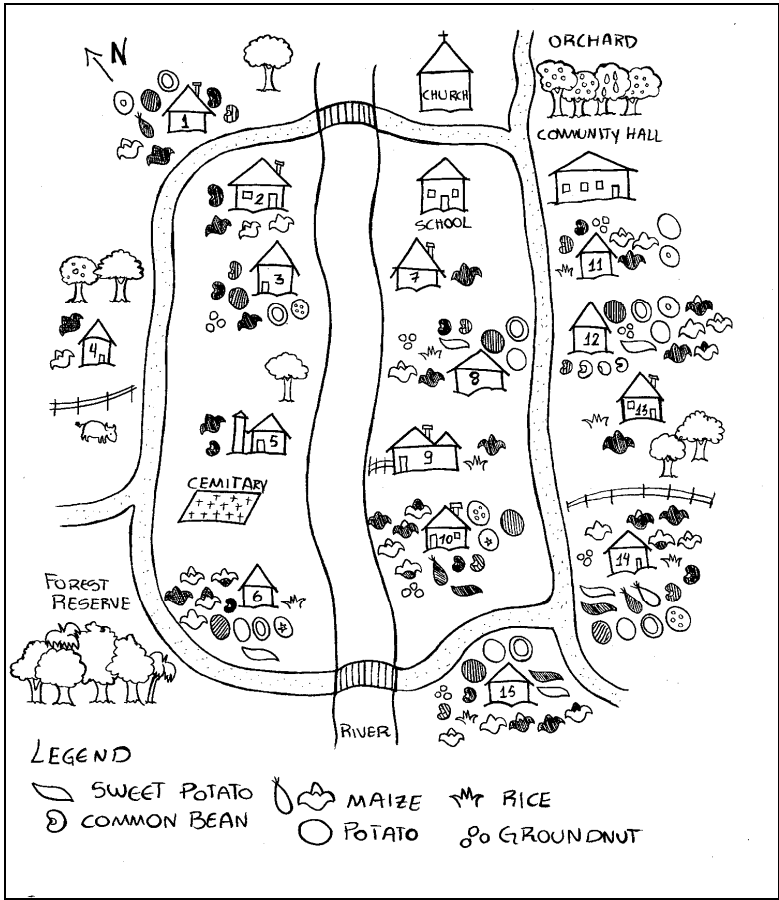 N
ORCHARD
CHURCH
COMMUNITY HALL
1
2
SCHOOL
3
7
11
4
12
8
13
5
9
CEMITARY
10
14
6
FOREST
RESERVE
15
RIVER
LEGEND
SWEET POTATO
MAIZE
RICE
COMMON BEAN
POTATO
GROUNDNUT